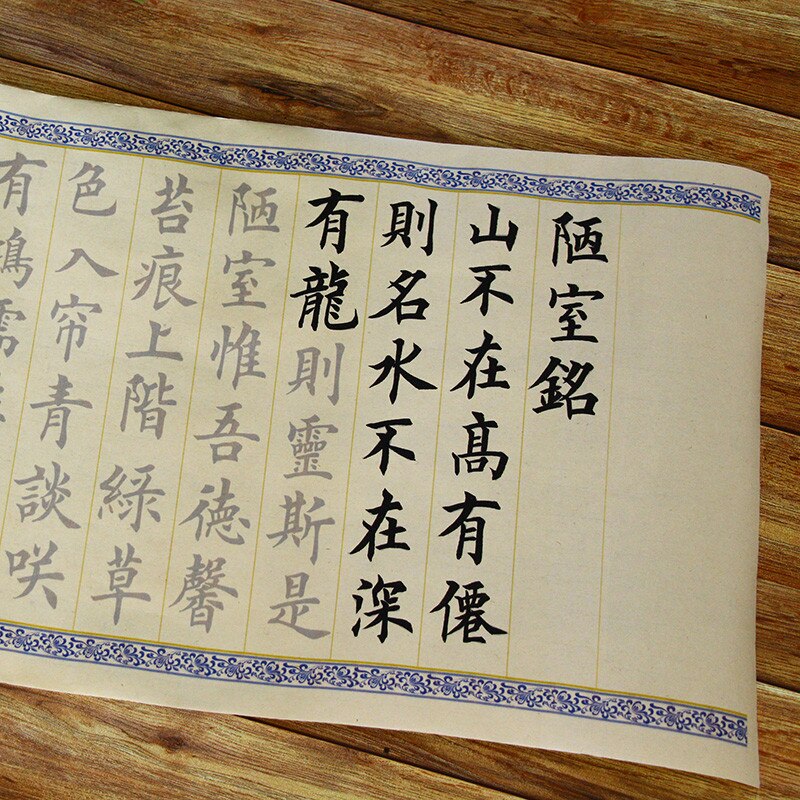 陋室銘
山不在高有僊
則名水不在深
有龍則靈斯是
陋室惟吾德馨
苔痕上階綠草
色入帘青談咲
有鴻儒